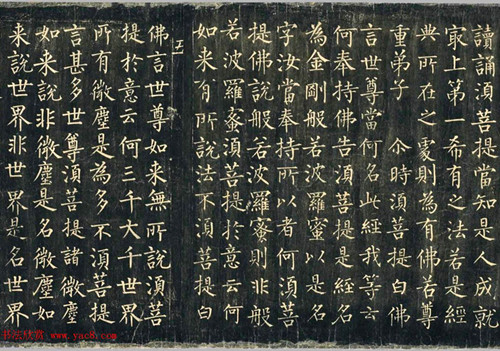 讀誦須菩提當知是人成就
冣上第一希有之法若是經
典所在之處則為有佛若尊
重弟子 尒時須菩提白佛
言世尊當何名此經我等云
何奉持佛告須菩提是經名
為金剛般若波羅蜜以是名
字汝當奉持所以者何須菩
提佛說般若波羅蜜則非般
若波羅蜜須菩提於意云何
如来有所說法不須菩提白
五
佛言世尊如来無所說須菩
提於意云何三千大千世界
所有微塵是為多不須菩提
言甚多世尊須菩提諸微塵
如来說非微塵是名微塵如
来說世界非世界是名世界
书法欣赏
www.yac8.com